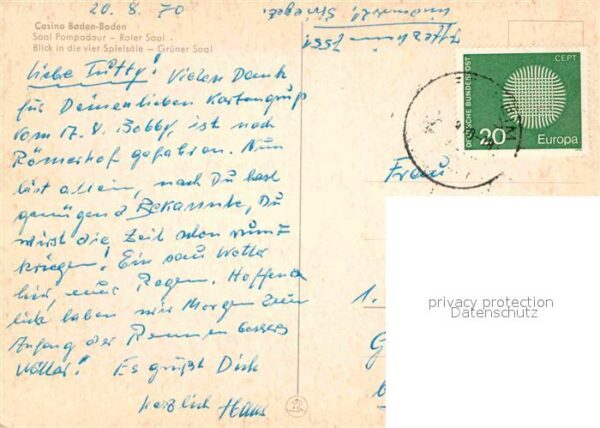 20. 8. 70
Casino Baden-Baden
Saal Pompadour - Roter Saal
Blick in die vier Spielsäle - Grüner Saal
Liebe Tutty! Vielen Dank
für Deinen lieben Kartengruß
vom 17. 8. Bobby, ist nach
Römerhof gefahren. Nun
bist allein, nach Du hast
genügend Bekannte, Du
wirst die Zeit schon rum=
kriegen! Ein sau Wetter
hier, nur Regen. Hoffent=
lich haben wir Morgen zum
Anfang der Rennen besseres
Wetter! Es grüßt Dich
herzlich Hans
DEUTSCHE BUNDESPOST
CEPT
20
Europa
Frau
1.
privacy protection
Datenschutz